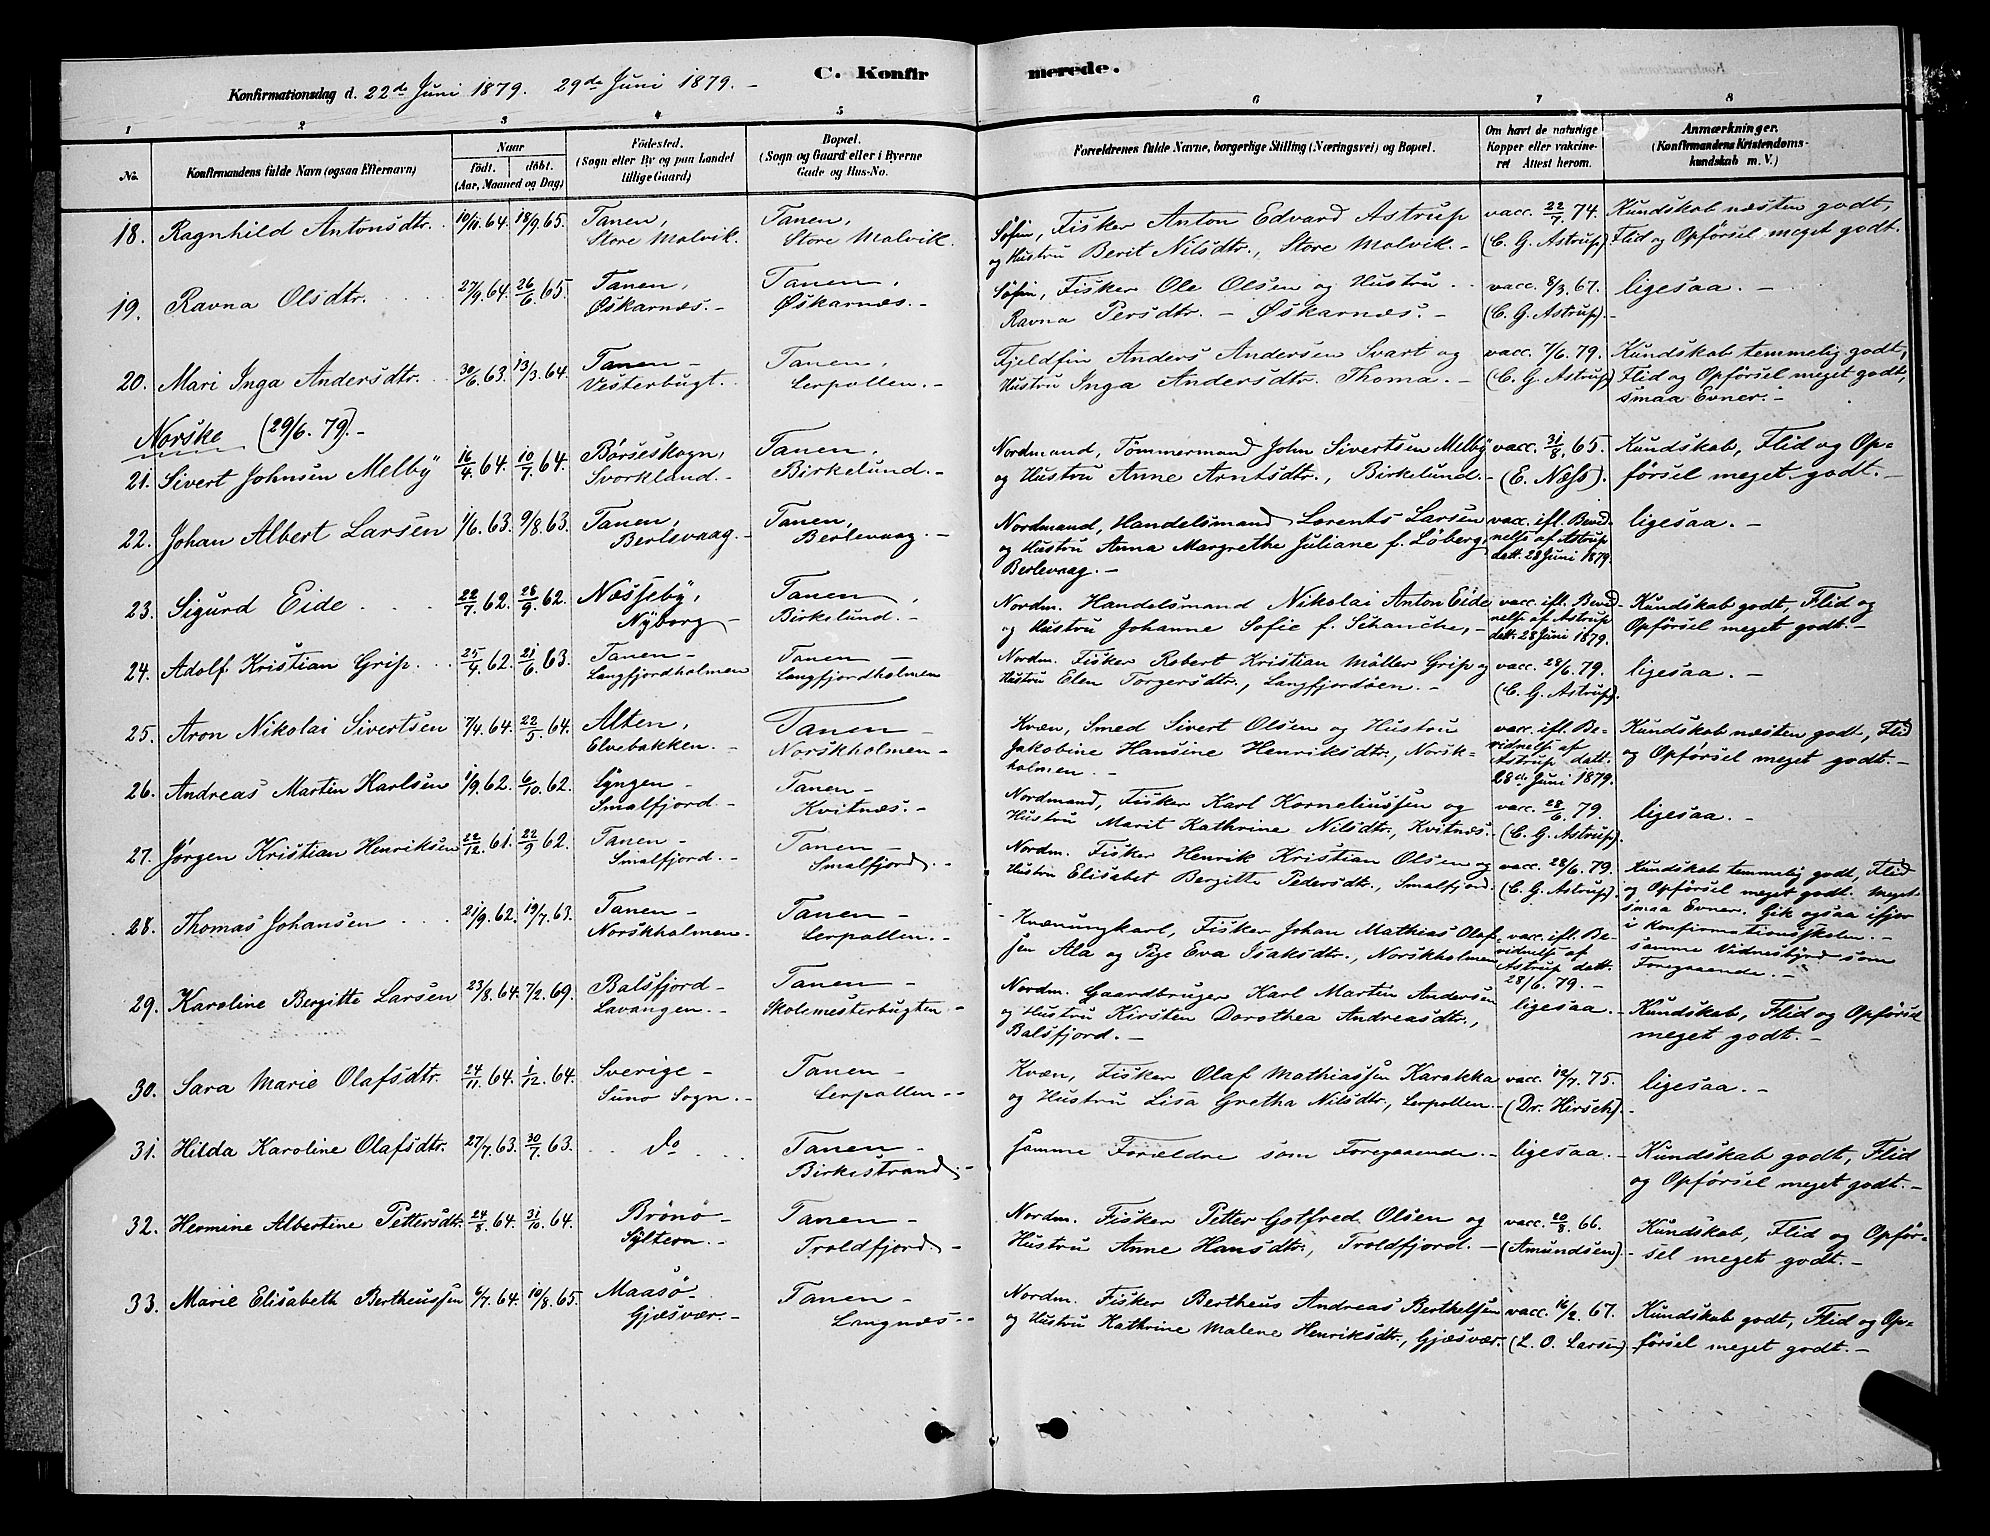 C. Konfirmerede.
Konfirmationsdag d. 22de Juni 1879. 29de Juni 1879. -
1 2 3 4 5 6 7 8
No. Konfirmandens fulde Navn (ogsaa Efternavn)
Naar født. døbt. (Aar, Maaned og Dag)
Fødested. (Sogn eller By og paa Landet tillige Gaard)
Bopæl. (Sogn og Gaard eller i Byerne Gade og Hus-No.
Forældrenes fulde Navne, borgerlige Stilling (Næringsvei) og Bopæl.
Om havt de naturlige Kopper eller vakcineret Attest herom.
Anmærkninger. (Konfirmandens Kristendomskundskab m. V.)
18. Ragnhild Antonsdtr. 10/11.64. 18/9.65. Tanen, Tanen, Søfin, Fisker Anton Edvard Astrup vacc. 22/7 74. Kundskab næsten godt,
Store Molvik. Store Molvik. og Hustru Berit Nilsdtr., Store Molvik. - (C. G. Astrup). Flid og Opførsel meget godt.
19. Ravna Olsdtr. 27/9.64. 26/6.65. Tanen, Tanen, Søfin, Fisker Ole Olsen og Hustru vacc. 8/3.67. ligesaa. -
Øskarnæs. - Øskarnæs. - Ravna Persdtr. - Øskarnæs. - (C. G. Astrup). -
20. Mari Inga Andersdtr. 30/6.63. 13/3.64. Tanen - Tanen, Fjeldfin Anders Andersen Svart og vacc. 7/6.79. Kundskab temmelig godt,
Vesterbugt. Lerpollen. - Hustru Inga Andersdtr. Thoma. - (C. G. Astrup) Flid og Opførsel meget godt,
smaa Evner. -
Norske (29/6.79). -
21. Sivert Johnsen Melby 16/4.64. 10/7.64. Børseskogn, Tanen, Nordmand, Tømmermand John Sivertsen Melby vacc. 31/8.65. Kundskab, Flid og Op-
Svorkland. - Birkelund. - og Hustru Anne Arntsdtr., Birkelund. - (E. Næss). førsel meget godt. -
22. Johan Albert Larsen 1/6.63. 9/8.63. Tanen, Tanen, Nordmand, Handelsmand Lorents Larsen vacc. ifl. Bevid- ligesaa. -
Berlevaag. - Berlevaag. - og Hustru Anna Margrethe Juliane f. Løberg, nelse af Astrup
Berlevaag. - datt. 28 Juni 1879.
23. Sigurd Eide 22/7.62. 28/9.62. Næsseby, Tanen, Nordm. Handelsmand Nikolai Anton Eide vacc. ifl. Bevid- Kundskab godt, Flid og
Nyborg - Birkelund. - og Hustru Johanne Sofie f. Schanche, - nelse af Astrup Opførsel meget godt. -
datt. 28 Juni 1879.
24. Adolf Kristian Grip. 25/4.62. 21/6.63. Tanen - Tanen - Nordm. Fisker Robert Kristian Møller Grip og vacc. 28/6.79. ligesaa. -
Langfjordholmen Langfjordholmen Hustru Elen Torgersdtr., Langfjordøen. - (C. G. Astrup).
25. Aron Nikolai Sivertsen 7/4.64. 22/5.64. Alten, Tanen - Kvæn, Smed Sivert Olsen og Hustru vacc. ifl. Be- Kundskab næsten godt, Flid
Elvebakken. - Norskholmen - Jakobine Hansine Henriksdtr., Norsk- vidnelse af og Opførsel meget godt. -
holmen. - Astrup datt. 28de Juni 1879.
26. Andreas Martin Karlsen 1/9.62. 6/10.62. Lyngen - Tanen - Nordmand, Fisker Karl Korneliussen og vacc. 28/6.79. ligesaa. -
Smalfjord. - Kvitnæs. - Hustru Marit Kathrine Nilsdtr., Kvitnæs. - (C. G. Astrup).
27. Jørgen Kristian Henriksen 22/12.61. 22/9.62. Tanen - Tanen - Nordm. Fisker Henrik Kristian Olsen og vacc. 28/6.79. Kundskab temmelig godt, Flid
Smalfjord. - Smalfjord. - Hustru Elisabet Bergitte Pedersdtr., Smalfjord. (C. G. Astrup). og Opførsel meget godt. Meget
smaa Evner. Gik ogsaa ifjor
i Konfirmationsskolen. -
28. Thomas Johansen 21/9.62. 19/7.63. Tanen - Tanen - Kvænungkarl, Fisker Johan Mathias Olaf- vacc. ifl. Be- samme Vidnesbyrd som
Norskholmen. Lerpollen. - sen Ala og Pige Eva Isaksdtr., Norskholmen vidnelse af Foregaaende. -
Astrup datt. 28/6.79. -
29. Karoline Bergitte Larsen 23/8.64. 7/2.69. Balsfjord - Tanen - Nordm. Gaardbruger Karl Martin Andersen ligesaa. - Kundskab, Flid og Opførsel
Lavangen. - Skolemesterbugten - og Hustru Kirsten Dorothea Andreasdtr., meget godt. -
Balsfjord. -
30. Sara Marie Olafsdtr. 24/11.64. 1/12.64. Sverige - Tanen - Kvæn, Fisker Olaf Mathiassen Karakka vacc. 12/7.75. ligesaa. -
Sogn. - Lerpollen. - og Hustru Lisa Gretha Nilsdtr., Lerpollen. - (Dr. Hirsch). -
31. Hilda Karoline Olafsdtr. 27/7.63. 30/7.63. do Tanen - Samme Forældre som Foregaaende. - ligesaa. - Kundskab godt, Flid
Birkestrand. - og Opførsel meget godt. -
32. Hermine Albertine Pettersdtr. 24/8.64. 31/10.64. Brønø - Tanen - Nordm. Fisker Petter Gotfred Olsen og vacc. 20/8.66. Kundskab, Flid og Opfør-
Syltern. - Troldfjord. - Hustru Anne Hansdtr., Troldfjord. - (Amundsen). - sel meget godt. -
33. Marie Elisabeth Bertheussen 6/7.64. 10/8.65. Maasø - Tanen - Nordm. Fisker Bertheus Andreas Berthelsen vacc. 16/2.67. Kundskab godt, Flid og Op-
Gjæsvær. - Langnæs. - og Hustru Kathrine Malene Henriksdtr., Gjæsvær. (L. O. Larsen) førsel meget godt. -